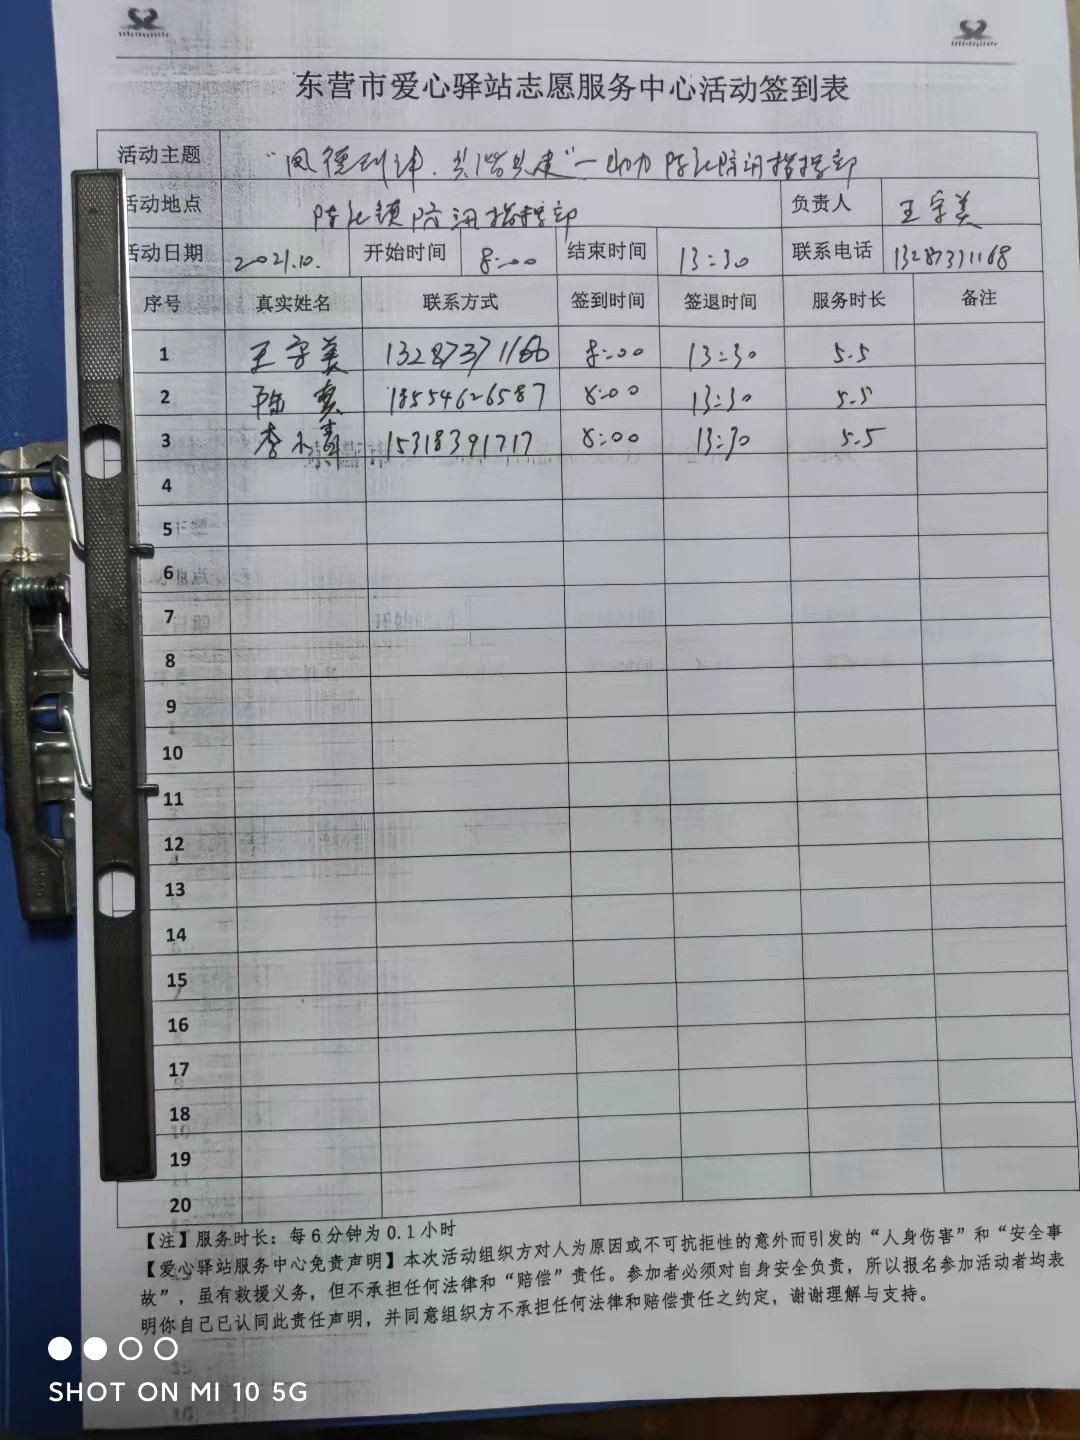 东营市爱心驿站志愿服务中心活动签到表
活动主题 共建"一助力 防汛指挥部
活动地点 防汛指挥部 负责人 王字美
活动日期 2021.10. 开始时间 8:00 结束时间 13:30 联系电话 13287371168
序号 真实姓名 联系方式 签到时间 签退时间 服务时长 备注
1 王字美 8:00 13:30 5.5
2 18554626587 8:00 13:30 5.5
3 李 15318391717 8:00 13:30 5.5
4
5
6
7
8
9
10
11
12
13
14
15
16
17
18
19
20
【注】服务时长：每6分钟为0.1小时
【爱心驿站服务中心免责声明】本次活动组织方对人为原因或不可抗拒性的意外而引发的“人身伤害”和“安全事
故”，虽有救援义务，但不承担任何法律和“赔偿”责任。参加者必须对自身安全负责，所以报名参加活动者均表
明你自己已认同此责任声明，并同意组织方不承担任何法律和赔偿责任之约定，谢谢理解与支持。
SHOT ON MI 10 5G